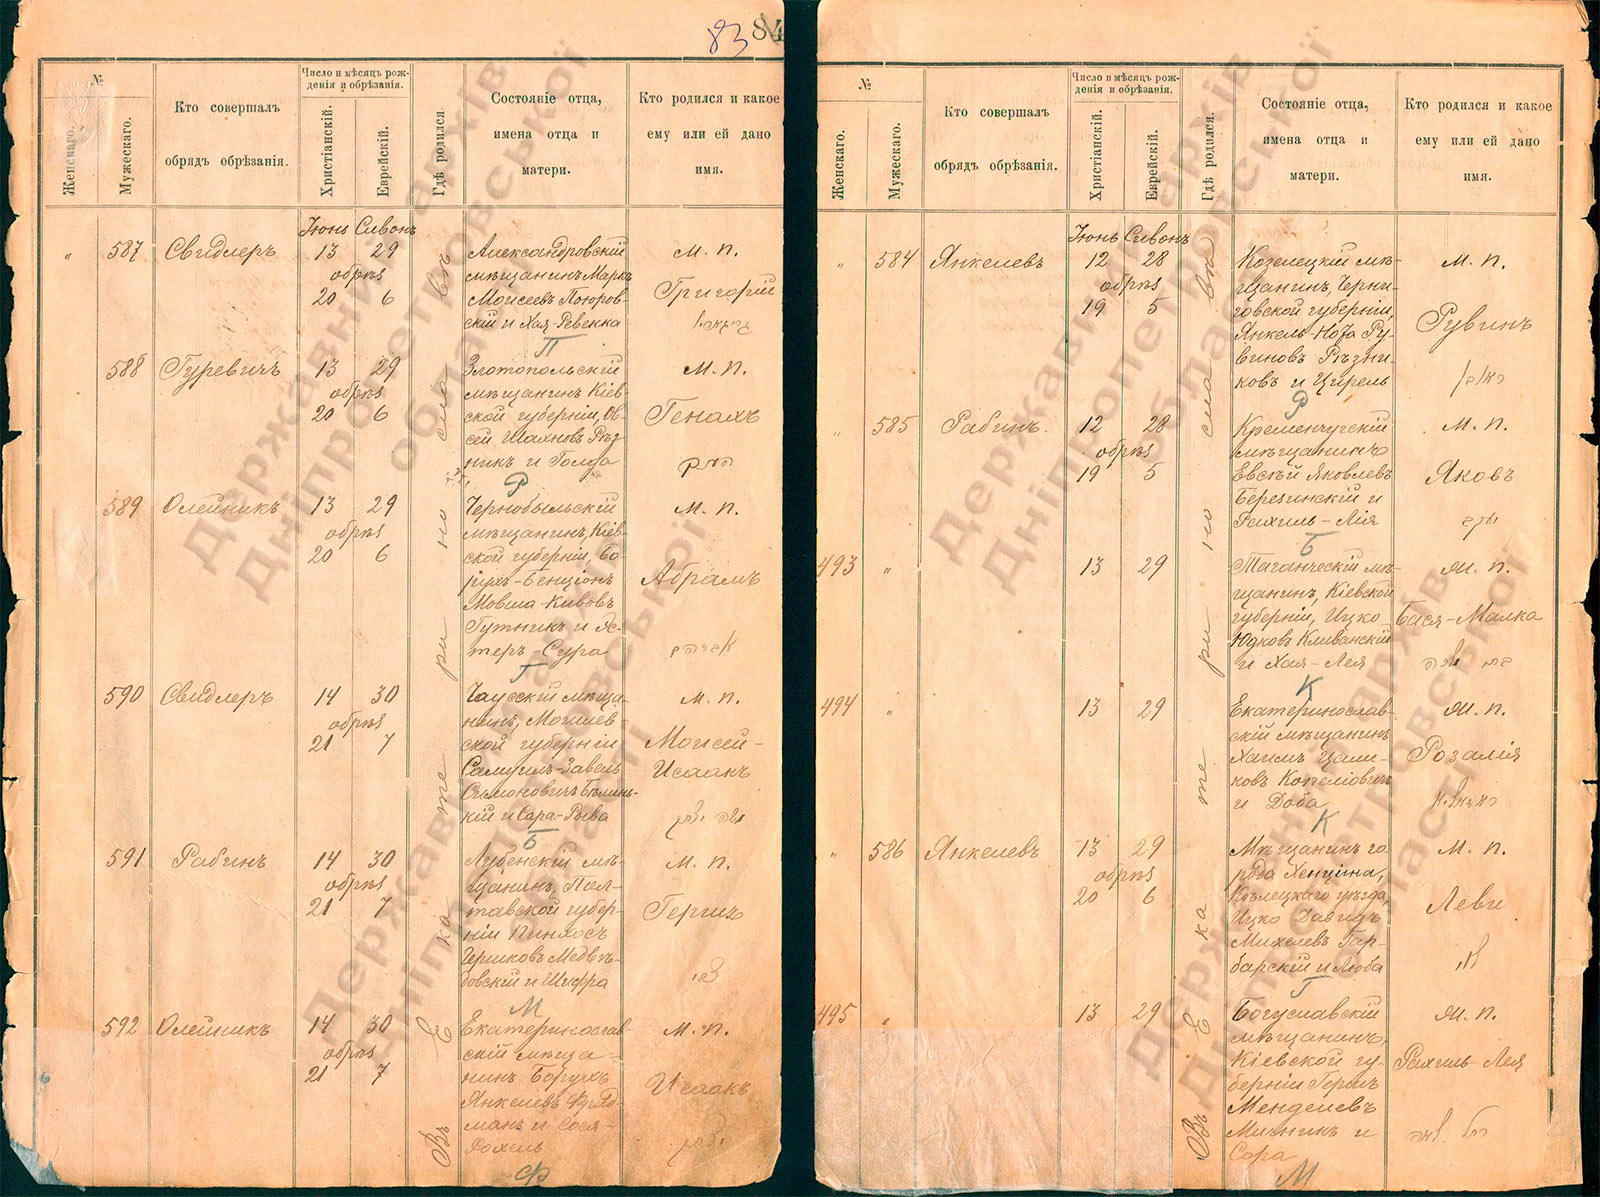 83 84
№
Женскаго.
Мужескаго.
Кто совершалъ
обрядъ обрѣзанія.
Число и мѣсяцъ рож-
денія и обрѣзанія.
Христіанскій.
Еврейскій.
Гдѣ родился
Состояніе отца,
имена отца и
матери.
Кто родился и какое
ему или ей дано
имя.
Въ Екатеринославѣ
Іюнь Сивонъ
" 587 Свидлеръ 13 29
обрѣз
20 6
Александровскій
мѣщанинъ Маркъ
Моисеевъ Поюров-
скій и Хая-Ревекка
П
М. п.
Григорій
588 Гуревичъ 13 29
обрѣз
20 6
Златопольскій
мѣщанинъ Кіев-
ской губерніи, Ов-
сей Шахновъ Рѣз-
никъ и Голда
Р
М. п.
Генахъ
589 Олейникъ 13 29
обрѣз
20 6
Чернобыльскій
мѣщанинъ, Кіев-
ской губерніи, Бо-
рухъ-Бенціонъ
Мовша-Кивовъ
Гутникъ и Эс-
теръ-Сура
Г
М. п.
Абрамъ
590 Свидлеръ 14 30
обрѣз
21 7
Чаусскій мѣща-
нинъ, Могилев
ской губерніи
Самуилъ-Завель
Сымоновичъ Бѣлинь-
кій и Сара-Рыва
Б
М. п.
Моисей-
Исаакъ
משה יצחק
591 Рабинъ 14 30
обрѣз
21 7
Лубенскій мѣ-
щанинъ, Пол-
тавской губер-
ніи Пинхосъ
Гершковъ Медвѣ-
довскій и Шифра
М
М. п.
Гершъ
צבי
592 Олейникъ 14 30
обрѣз
21 7
Екатеринослав-
скій мѣща-
нинъ Борухъ
Янкелевъ
манъ и Сося-
Рохель
Ф
М. п.
Исаакъ
יצחק
№
Женскаго.
Мужескаго.
Кто совершалъ
обрядъ обрѣзанія.
Число и мѣсяцъ рож-
денія и обрѣзанія.
Христіанскій.
Еврейскій.
Гдѣ родился.
Состояніе отца,
имена отца и
матери.
Кто родился и какое
ему или ей дано
имя.
Въ Екатеринославѣ
Іюнь Сивонъ
" 584 Янкелевъ 12 28
обрѣз
19 5
Козелецкій мѣ-
щанинъ, Черни-
говской губерніи,
Янкель-Нота Ру-
виновъ Рѣзни-
ковъ и Цирель
Р
М. п.
Рувинъ
ראובן
" 585 Рабинъ. 12 28
обрѣз
19 5
Кременчугскій
мѣщанинъ
Евсѣй Яковлевъ
Березинскій и
Рахиль-Лія
Б
М. п.
Яковъ
יעקב
493 " 13 29
Таганческій мѣ-
щанинъ, Кіевской
губерніи, Ицко
Юдковъ Кливанскій
и Хая-Лея
К
Ж. п.
Бася-Малка
494 " 13 29
Екатеринослав-
скій мѣщанинъ
Хаимъ Цали-
ковъ Копеліовичъ
и Доба
К
Ж. п.
Розалія
" 586 Янкелевъ 13 29
обрѣз
20 6
Мѣщанинъ го-
рода Хенцина,
Кѣлецкаго уѣзда,
Ицко Давидъ
Михелевъ Гар-
барскій и Люба
Г
М. п.
Леви
לוי
495 " 13 29
Богуславскій
мѣщанинъ,
Кіевской гу-
берніи Гершъ
Менделевъ
Митникъ и
Сора
М
Ж. п.
Рахиль-Лея
רחל לאה
Державний архів
Дніпропетровської
області